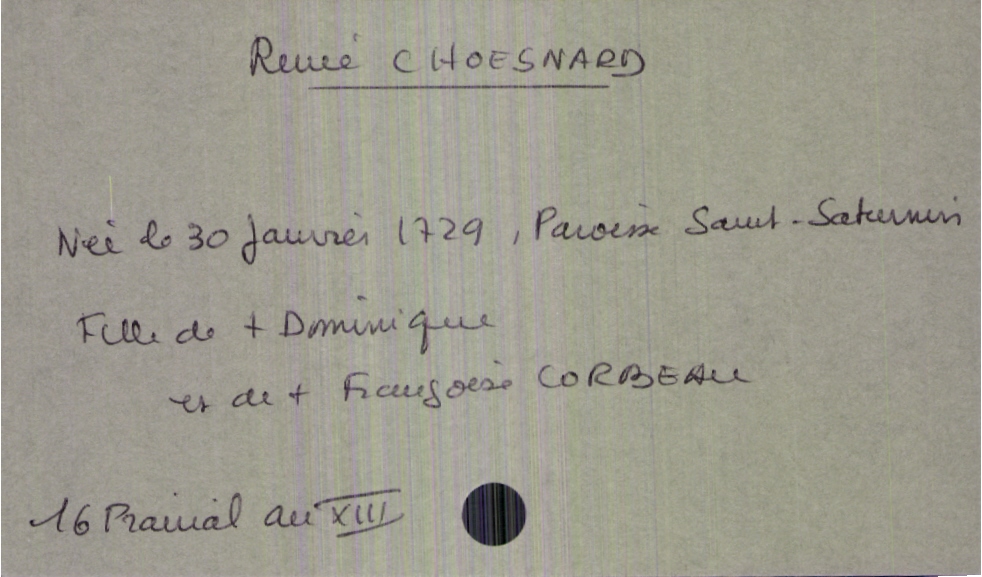 René CHOESNARD
Née le 30 Janvier 1729, Paroisse Saint-Saturnin
Fille de + Dominique
et de + Françoise CORBEAU
16 Prairial an XIII